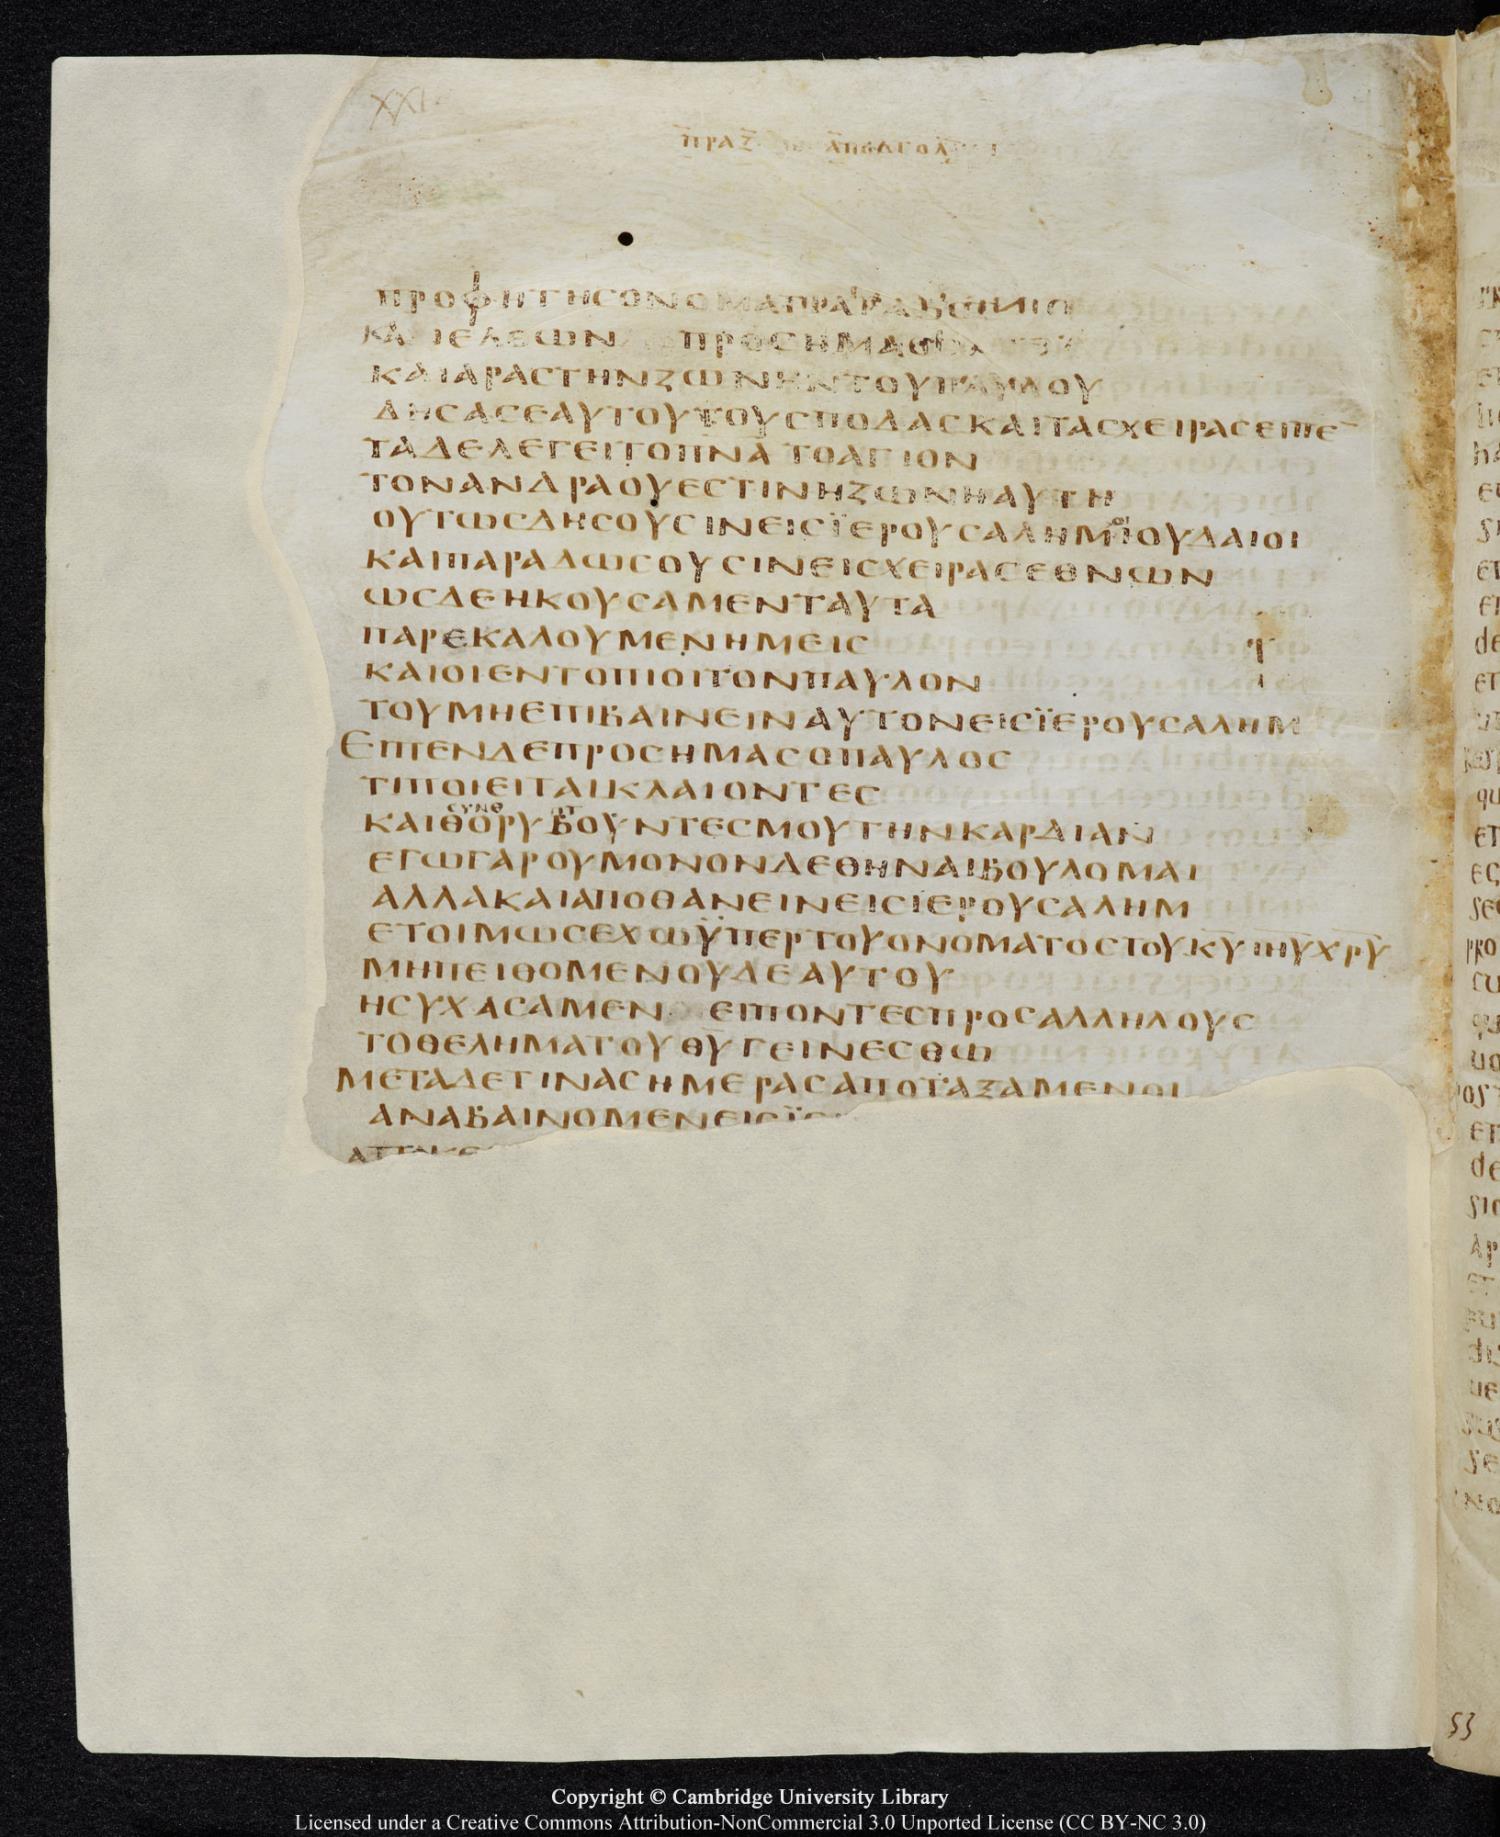 XXI
ΠΡΑΞ ΑΠΟΣΤΟΛ
ΠΡΟΦΗΤΗΣΟΝΟΜΑΤΙ
ΠΡΟΣΗΜΑΣ
ΚΑΙΑΡΑΣΤΗΝΖΩΝΗΝΤΟΥΠΑΥΛΟΥ
ΔΗΣΑΣΕΑΥΤΟΥΤΟΥΣΠΟΔΑΣΚΑΙΤΑΣΧΕΙΡΑΣΕΙΠΕ̅
ΤΑΔΕΛΕΓΕΙΤΟΠΝΑ ΤΟΑΓΙΟΝ
ΤΟΝΑΝΔΡΑΟΥΕΣΤΙΝΗΖΩΝΗΑΥΤΗ
ΟΥΤΩΣΔΗΣΟΥΣΙΝΕΙΣΪΕΡΟΥΣΑΛΗΜΟΙΙΟΥΔΑΙΟΙ
ΚΑΙΠΑΡΑΔΩΣΟΥΣΙΝΕΙΣΧΕΙΡΑΣΕΘΝΩΝ
ΩΣΔΕΗΚΟΥΣΑΜΕΝΤΑΥΤΑ
ΠΑΡΕΚΑΛΟΥΜΕΝΗΜΕΙΣ
ΚΑΙΟΙΕΝΤΟΠΙΟΙΤΟΝΠΑΥΛΟΝ
ΤΟΥΜΗΕΠΙΒΑΙΝΕΙΝΑΥΤΟΝΕΙΣΪΕΡΟΥΣΑΛΗΜ
ΕΙΠΕΝΔΕΠΡΟΣΗΜΑΣΟΠΑΥΛΟΣ
ΤΙΠΟΙΕΙΤΑΙΚΛΑΙΟΝΤΕΣ
ΣΥΝΘ ΠΤ
ΚΑΙΘΟΡΥΒΟΥΝΤΕΣΜΟΥΤΗΝΚΑΡΔΙΑΝ
ΕΓΩΓΑΡΟΥΜΟΝΟΝΔΕΘΗΝΑΙΒΟΥΛΟΜΑΙ
ΑΛΛΑΚΑΙΑΠΟΘΑΝΕΙΝΕΙΣΙΕΡΟΥΣΑΛΗΜ
ΕΤΟΙΜΩΣΕΧΩΫΠΕΡΤΟΥΟΝΟΜΑΤΟΣΤΟΥΚΥΙΗΥΧΡΥ
ΜΗΠΕΙΘΟΜΕΝΟΥΔΕΑΥΤΟΥ
ΗΣΥΧΑΣΑΜΕΝ ΕΙΠΟΝΤΕΣΠΡΟΣΑΛΛΗΛΟΥΣ
ΤΟΘΕΛΗΜΑΤΟΥΘΥΓΕΙΝΕΣΘΩ
ΜΕΤΑΔΕΤΙΝΑΣΗΜΕΡΑΣΑΠΟΤΑΞΑΜΕΝΟΙ
ΑΝΑΒΑΙΝΟΜΕΝΕΙΣΪΕ
53
Copyright © Cambridge University Library
Licensed under a Creative Commons Attribution-NonCommercial 3.0 Unported License (CC BY-NC 3.0)